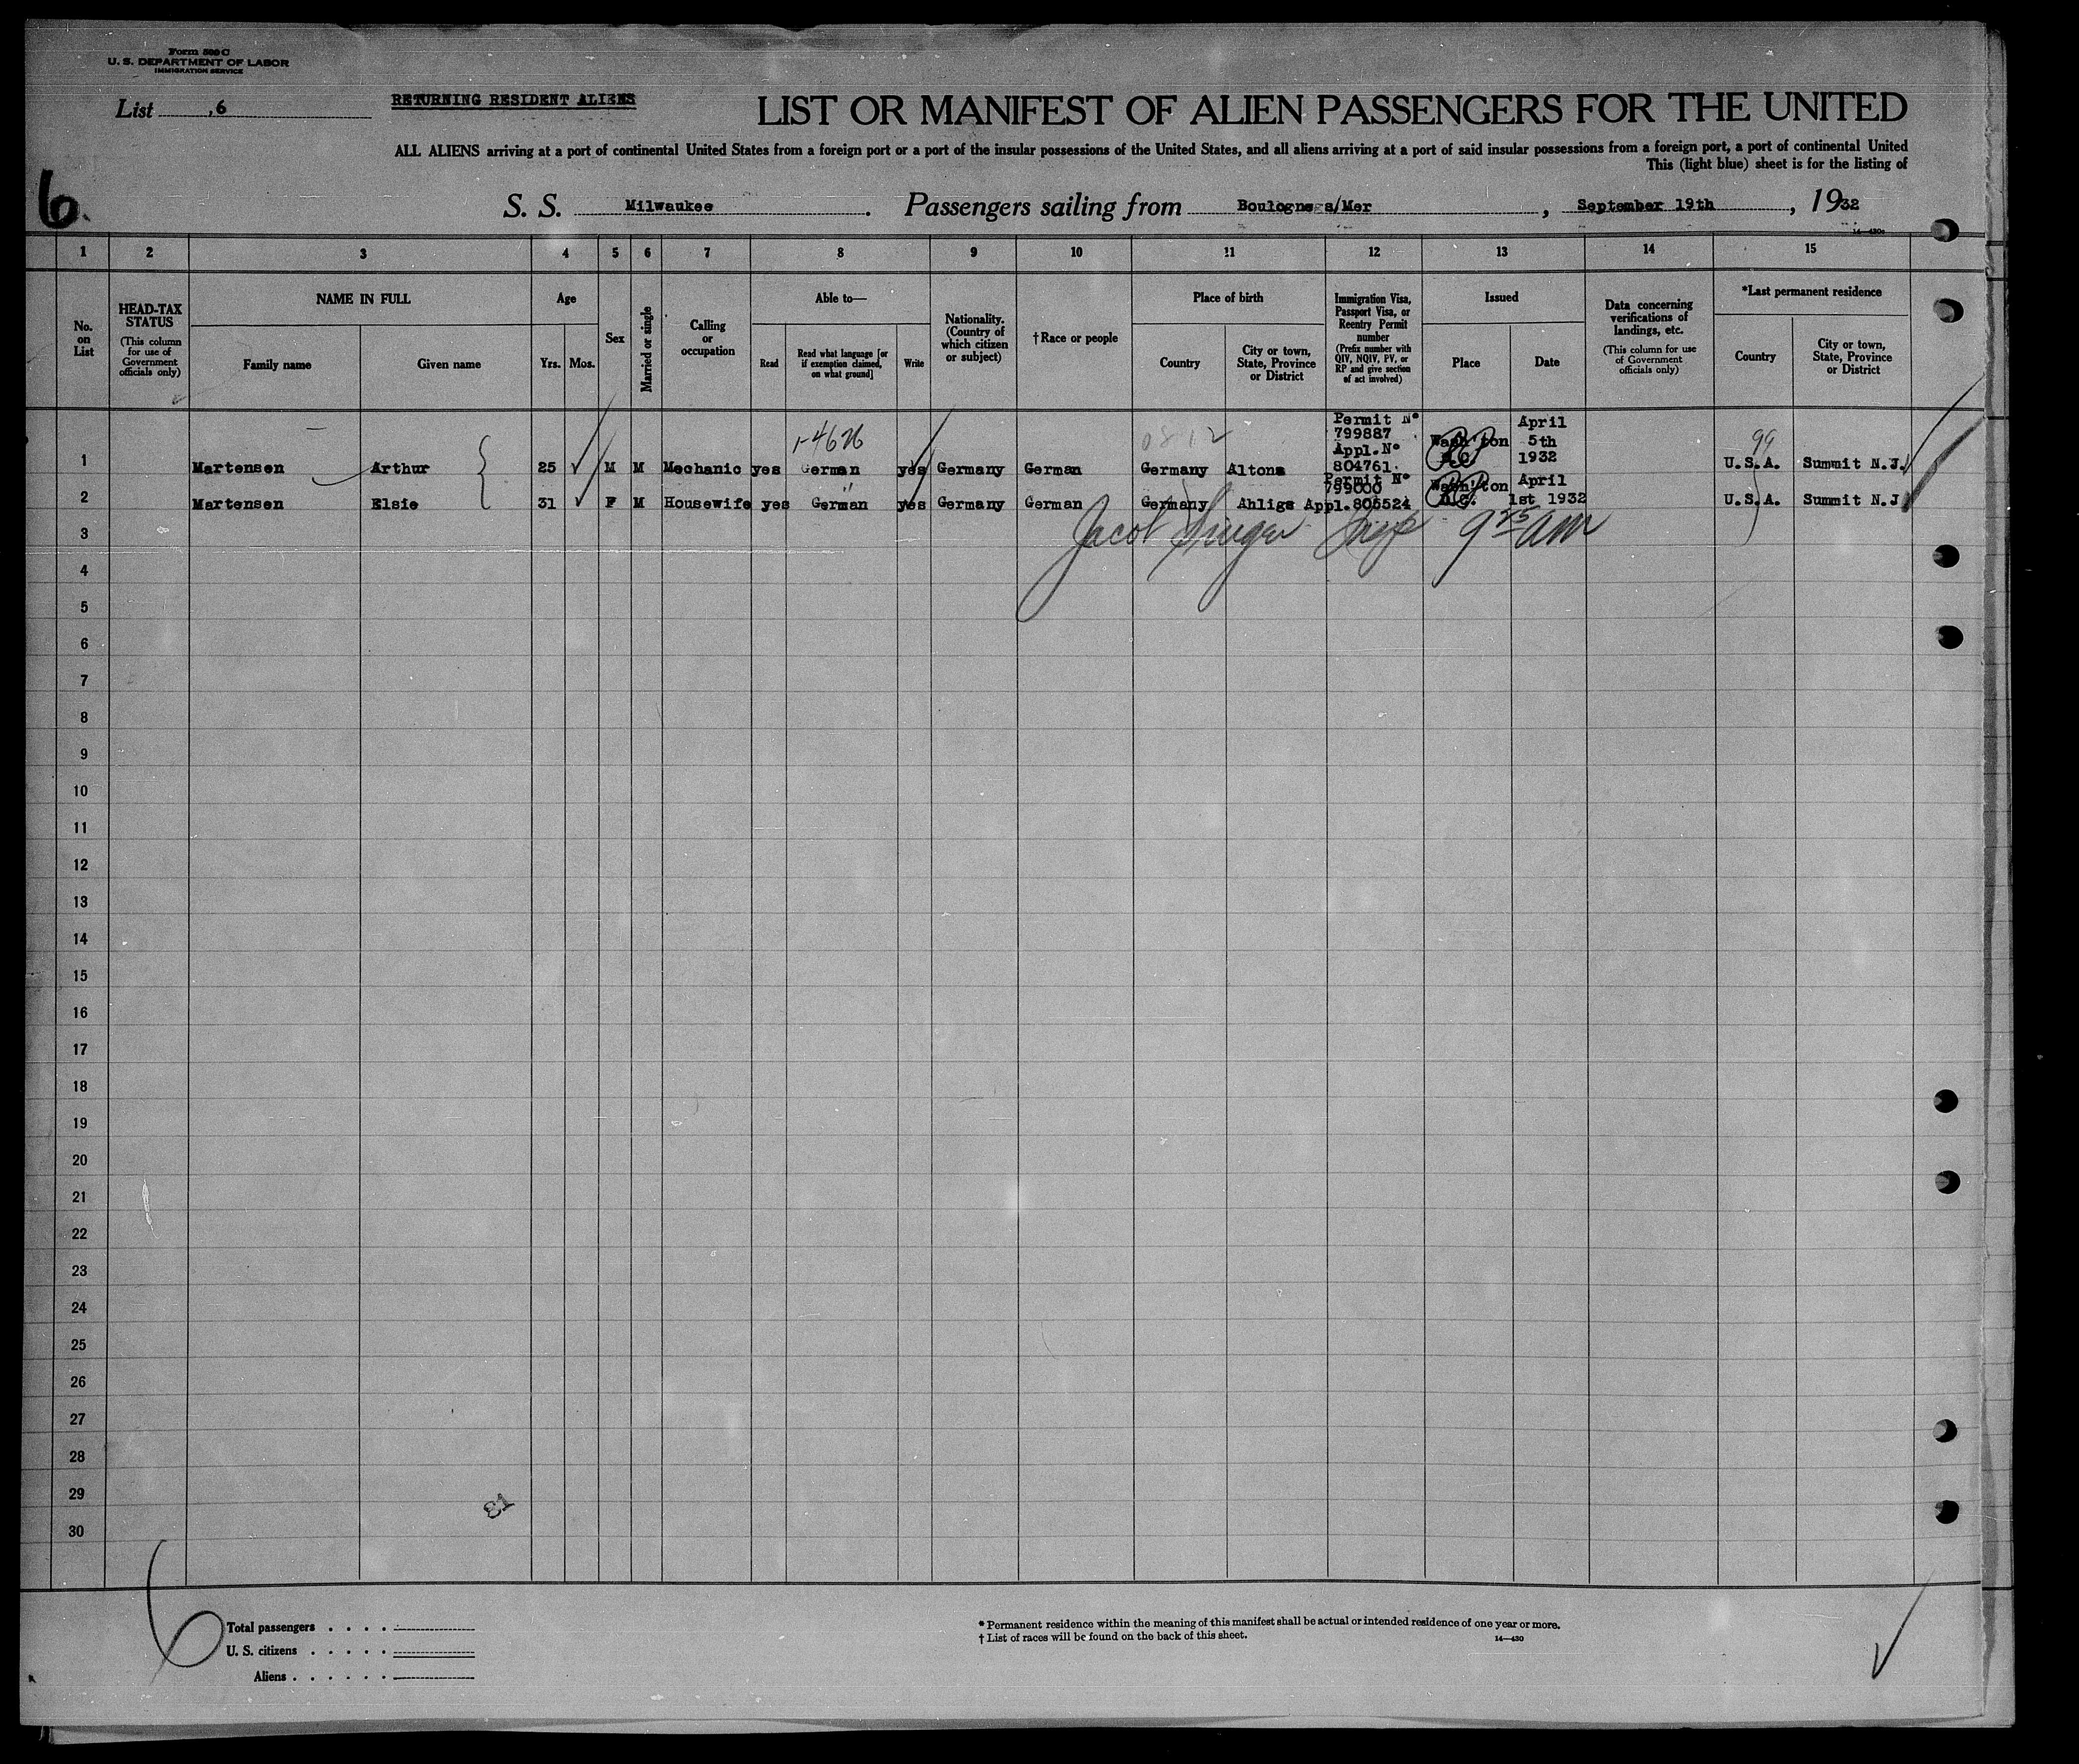 Form 500 C
U. S. DEPARTMENT OF LABOR
IMMIGRATION SERVICE
List 6
RETURNING RESIDENT ALIENS
LIST OR MANIFEST OF ALIEN PASSENGERS FOR THE UNITED
ALL ALIENS arriving at a port of continental United States from a foreign port or a port of the insular possessions of the United States, and all aliens arriving at a port of said insular possessions from a foreign port, a port of continental United
This (light blue) sheet is for the listing of
6.
S. S. Milwaukee. Passengers sailing from Boulogne s/Mer, September 19th, 1932
1 2 3 4 5 6 7 8 9 10 11 12 13 14 15
No. on List
HEAD-TAX STATUS
(This column for use of Government officials only)
NAME IN FULL
Family name
Given name
Age
Yrs. Mos.
Sex
Married or single
Calling or occupation
Able to—
Read
Read what language [or if exemption claimed, on what ground]
Write
Nationality. (Country of which citizen or subject)
†Race or people
Place of birth
Country
City or town, State, Province or District
Immigration Visa, Passport Visa, or Reentry Permit number
(Prefix number with QIV, NQIV, PV, or RP and give section of act involved)
Issued
Place
Date
Data concerning verifications of landings, etc.
(This column for use of Government officials only)
*Last permanent residence
Country
City or town, State, Province or District
1 Martensen Arthur 25 M M Mechanic yes German yes Germany German Germany Altona Permit No 799887 Appl.No 804761 Wash'ton D.C. April 5th 1932 U.S.A. Summit N.J.
2 Martensen Elsie 31 F M Housewife yes German yes Germany German Germany Ahligs Permit No 799000 Appl.806524 Wash'ton D.C. April 1st 1932 U.S.A. Summit N.J
99
Jacob Insp 9 25 AM
3
4
5
6
7
8
9
10
11
12
13
14
15
16
17
18
19
20
21
22
23
24
25
26
27
28
29
30
13
6
Total passengers
U. S. citizens
Aliens
* Permanent residence within the meaning of this manifest shall be actual or intended residence of one year or more.
† List of races will be found on the back of this sheet.
14—430